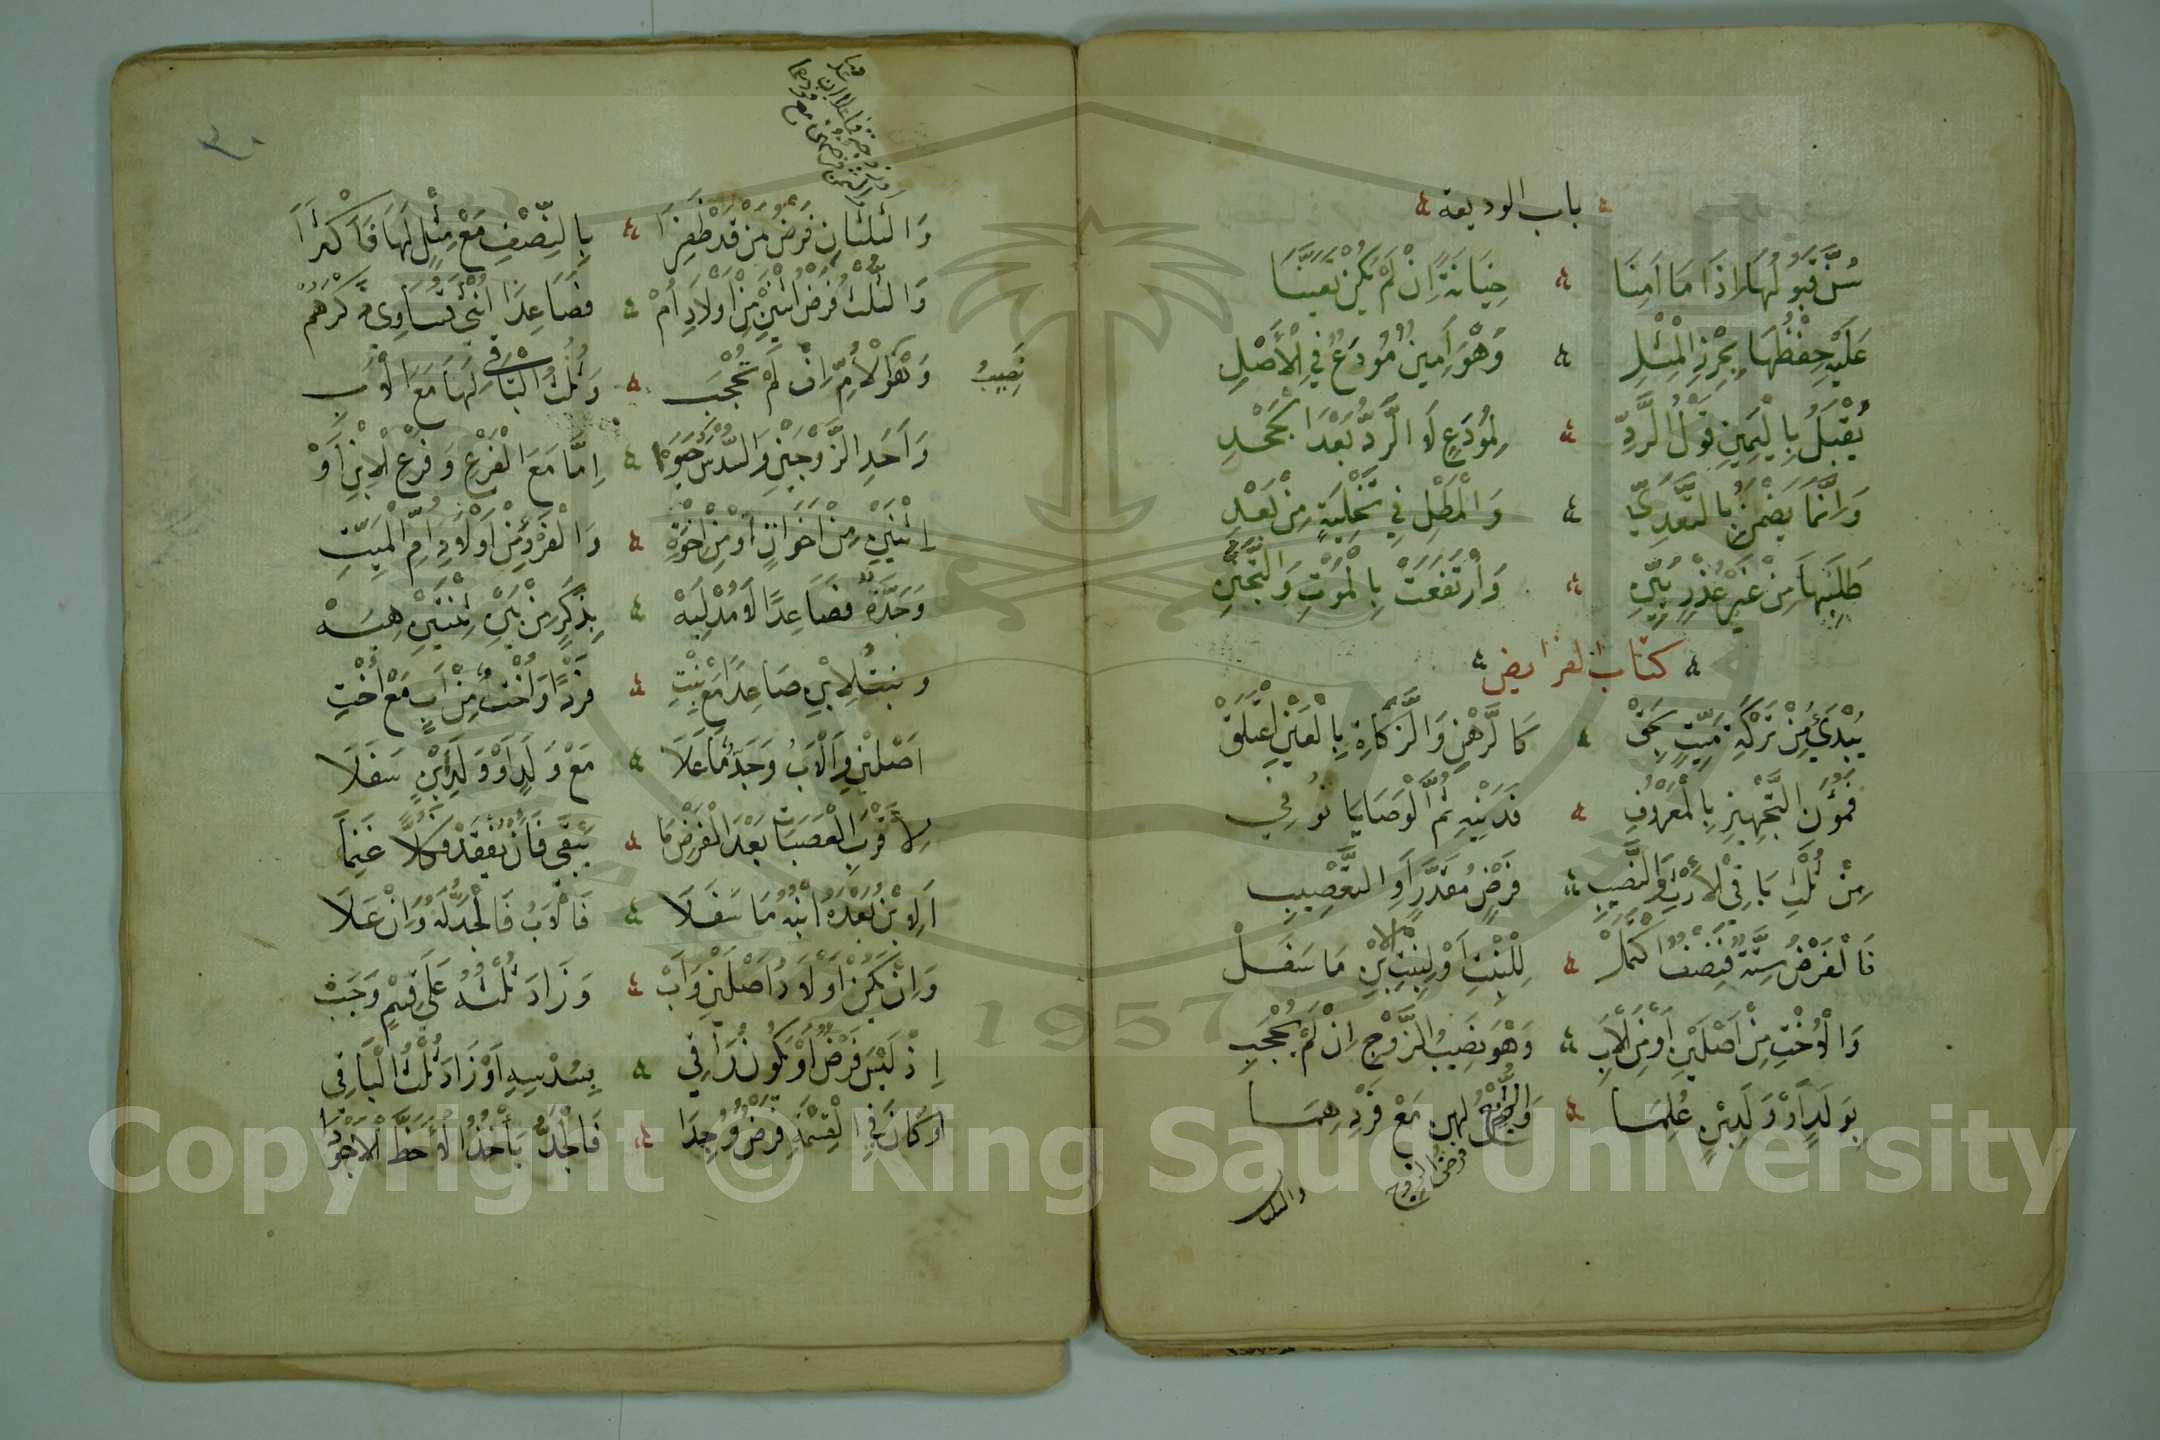 باب الوديعة
سُنَّ قَبُولُهَا إِذَا مَا أَمِنَا خِيَانَةً إِنْ لَمْ يَكُنْ تَعَيَّنَا
عَلَيْهِ حِفْظُهَا بِحِرْزِ الْمِثْلِ وَهْوَ أَمِينٌ مُودَعٌ فِي الْأَصْلِ
يُقْبَلُ بِالْيَمِينِ قَوْلُ الرَّدِّ لِمُودِعٍ لَا الرَّدُّ بَعْدَ الْجَحْدِ
وَإِنَّمَا يَضْمَنُ بِالتَّعَدِّي وَالْمَطْلِ فِي تَخْلِيَةٍ مِنْ بَعْدِ
طَلَبِهَا مِنْ غَيْرِ عُذْرٍ بَيِّنِ وَارْتَفَعَتْ بِالْمَوْتِ وَالتَّجَنُّنِ
كتاب الفرايض
يُبْدَئُ مِنْ تَرْكَةِ مَيِّتٍ بِحَقْ كَالرَّهْنِ وَالزَّكَاةِ بِالْعَيْنِ اعْتَلَقْ
فَمُؤَنُ التَّجْهِيزِ بِالْمَعْرُوفِ فَدَيْنِهِ ثُمَّ الْوَصَايَا تُوفِي
مِنْ ثُلْثِ بَاقِي الْأَرْثِ وَالنَّصِيبِ فَرْضٍ مُقَدَّرٍ أَوِ التَّعْصِيبِ
فَالْفَرْضُ سِتَّةٌ فَنِصْفٌ اكْتَمَلْ لِلْبِنْتِ أَوْ لِبِنْتِ الْابْنِ مَا سَفَلْ
وَالْأُخْتِ مِنْ أَصْلَيْنِ أَوْ مِنَ الْأَبِ وَهْوَ نَصِيبُ الزَّوْجِ إِنْ لَمْ يُحْجَبِ
بِوَلَدٍ أَوْ وَلَدِ ابْنٍ عُلِمَا وَالثُّمْنُ لَهُنَّ مَعْ فَرْدِهِمَا
فرض الزوج
والثلثان
وَالثُّلُثَانِ فَرْضُ مَنْ قَدْ ظَفِرَا بِالنِّصْفِ مَعْ مِثْلٍ لَهَا فَأَكْثَرَا
وَالثُّلْثُ فَرْضُ اثْنَيْنِ مِنْ أَوْلَادِ أُمْ فَصَاعِدًا أُنْثَى تُسَاوِي ذَكَرَهُمْ
نَصِيبُ
وَهْوَ الْأُمِّ إِنْ لَمْ تُحْجَبِ وَثُلْثُ الْبَاقِي لَهَا مَعَ الْأَبِ
وَأَحَدِ الزَّوْجَيْنِ وَالسُّدْسُ حَبَوْا إِمَّا مَعَ الْفَرْعِ وَفَرْعِ الْابْنِ أَوْ
اثْنَيْنِ مِنْ أَخَوَاتٍ أَوْ مِنْ إِخْوَةِ وَالْفَرْدُ مِنْ أَوْلَادِ أُمِّ الْمَيِّتِ
وَجَدَّةٌ فَصَاعِدًا لَا مُدْلِيَهْ بِذَكَرٍ مِنْ بَيْنِ ثِنْتَيْنِ هِيَهْ
وبنتُ الِابْنِ صَاعِدًا مَعْ بِنْتِ فَرْدًا وَأُخْتٌ مِنْ أَبٍ مَعْ أُخْتِ
أَصْلَيْنِ وَالْأَبُ وَجَدٌّ مَا عَلَا مَعْ وَلَدٍ أَوْ وَلَدِ ابْنٍ سَفَلَا
لِأَقْرَبِ الْعَصَبَاتِ بَعْدَ الْفَرْضِ مَا يَبْقَى فَإِنْ يُفْقَدْ فَكُلًّا غَنِمَا
اَلِابْنُ بَعْدَهُ ابْنُهُ مَا سَفَلَا فَالْأَبُ فَالْجَدُّ لَهُ وَإِنْ عَلَا
وَإِنْ يَكُنْ أَوْلَادُ أَصْلَيْنِ وَأَبْ وَزَادَ ثُلْثُهُ عَلَى قِسْمٍ وَجَبْ
إِذْ لَيْسَ فَرْضٌ أَوْ يَكُونُ رَاقِي بِسُدْسِهِ أَوْ زَادَ ثُلْثُ الْبَاقِي
أَوْ كَانَ فِي الْقِسْمَةِ فَرْضٌ وُجِدَا فَالْجَدُّ يَأْخُذُ الْأَحَظَّ الْأَجْوَدَا
Copyright © King Saud University
1957